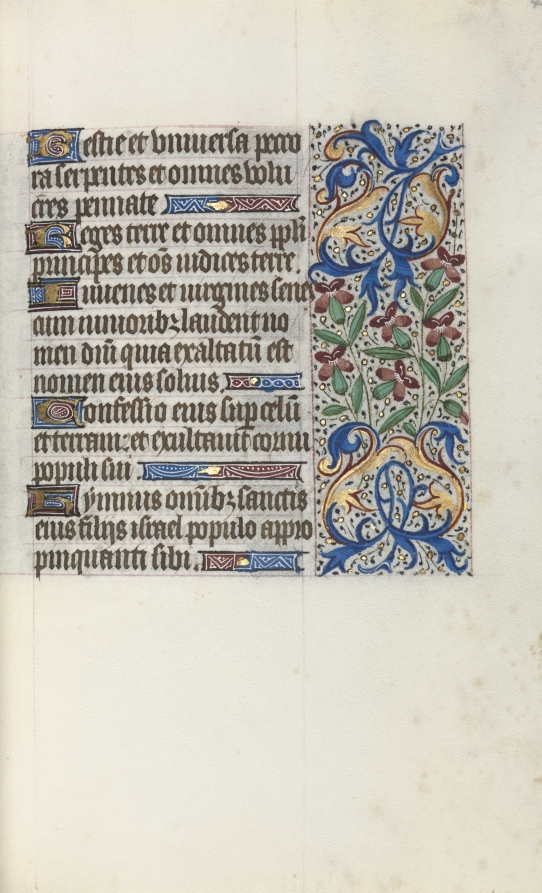 Bestie et vniuersa peco
ra serpentes et omnes volu
cres pennate
Reges terre et omnes ppli
principes et oẽs iudices terre
Iuuenes et uirgines senes
cum iunioribꝫ laudent no
men dñi quia exaltatũ est
nomen eius solius.
Confessio eius sup celũ
et terram: et exultauit cornu
populi sui
Hymnus omĩbꝫ sanctis
eius filijs israel populo appro
pinquanti sibi.